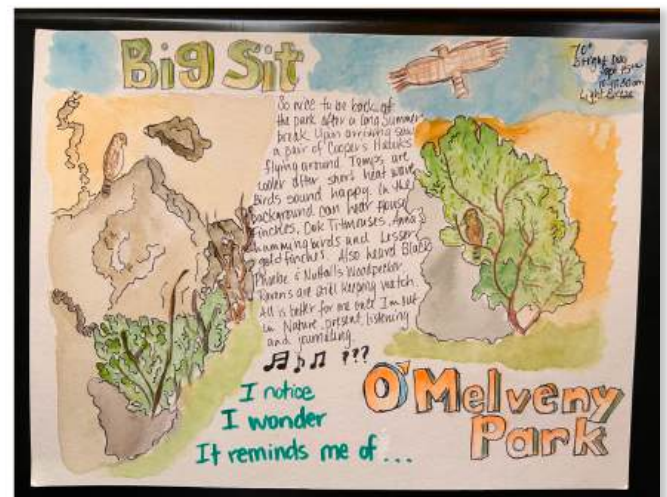 Big Sit
70°
Bright Day
Sept 15th
Light Breeze
So nice to be back at
the park after a long Summer
break. Upon arriving saw
a pair of Coopers Hawks
flying around. Temps are
cooler after short heat wave
Birds sound happy. In the
background can hear House
finches, Oak Titmouses, Anna's
hummingbirds and Lesser
goldfinches. Also heard Black
Phoebe & Nuttall's Woodpecker.
Ravens are still keeping watch.
All is better for me once I'm out
in Nature, present, listening
and journaling.
???
I notice
I wonder
It reminds me of...
O'Melveny
Park